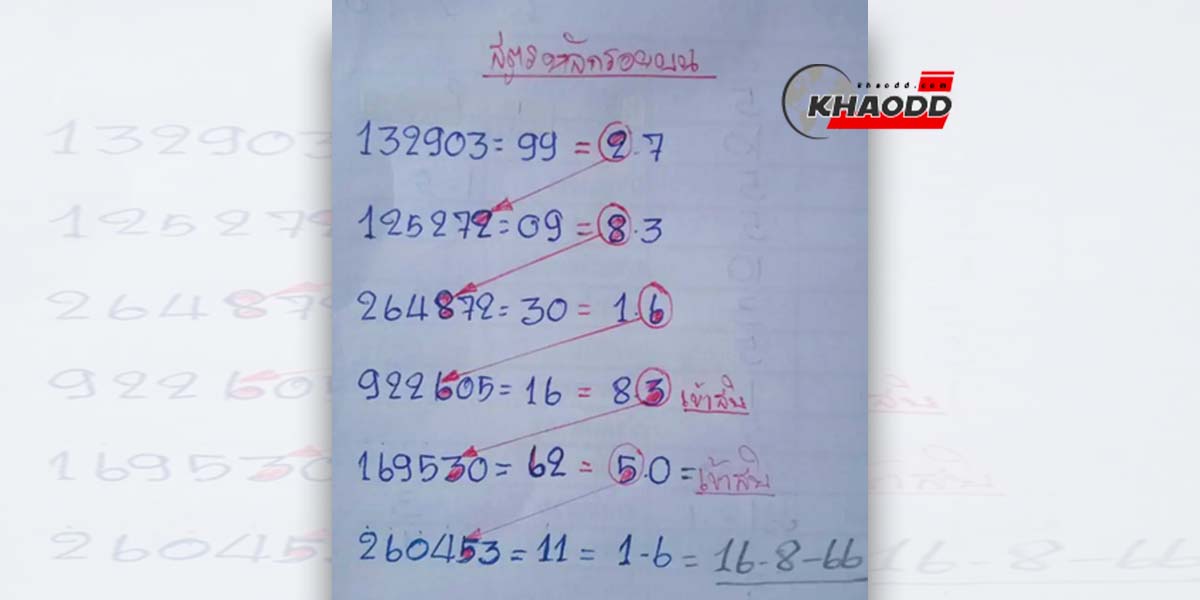 สูตรหลักร้อยบน
khaodd.com
KHAODD
132903 = 99 = 2.7
125272 = 09 = 8.3
264872 = 30 = 1.6
922605 = 16 = 8.3 เข้าสิบ
169530 = 62 = 5.0 = เข้าสิบ
260453 = 11 = 1-6 = 16-8-66